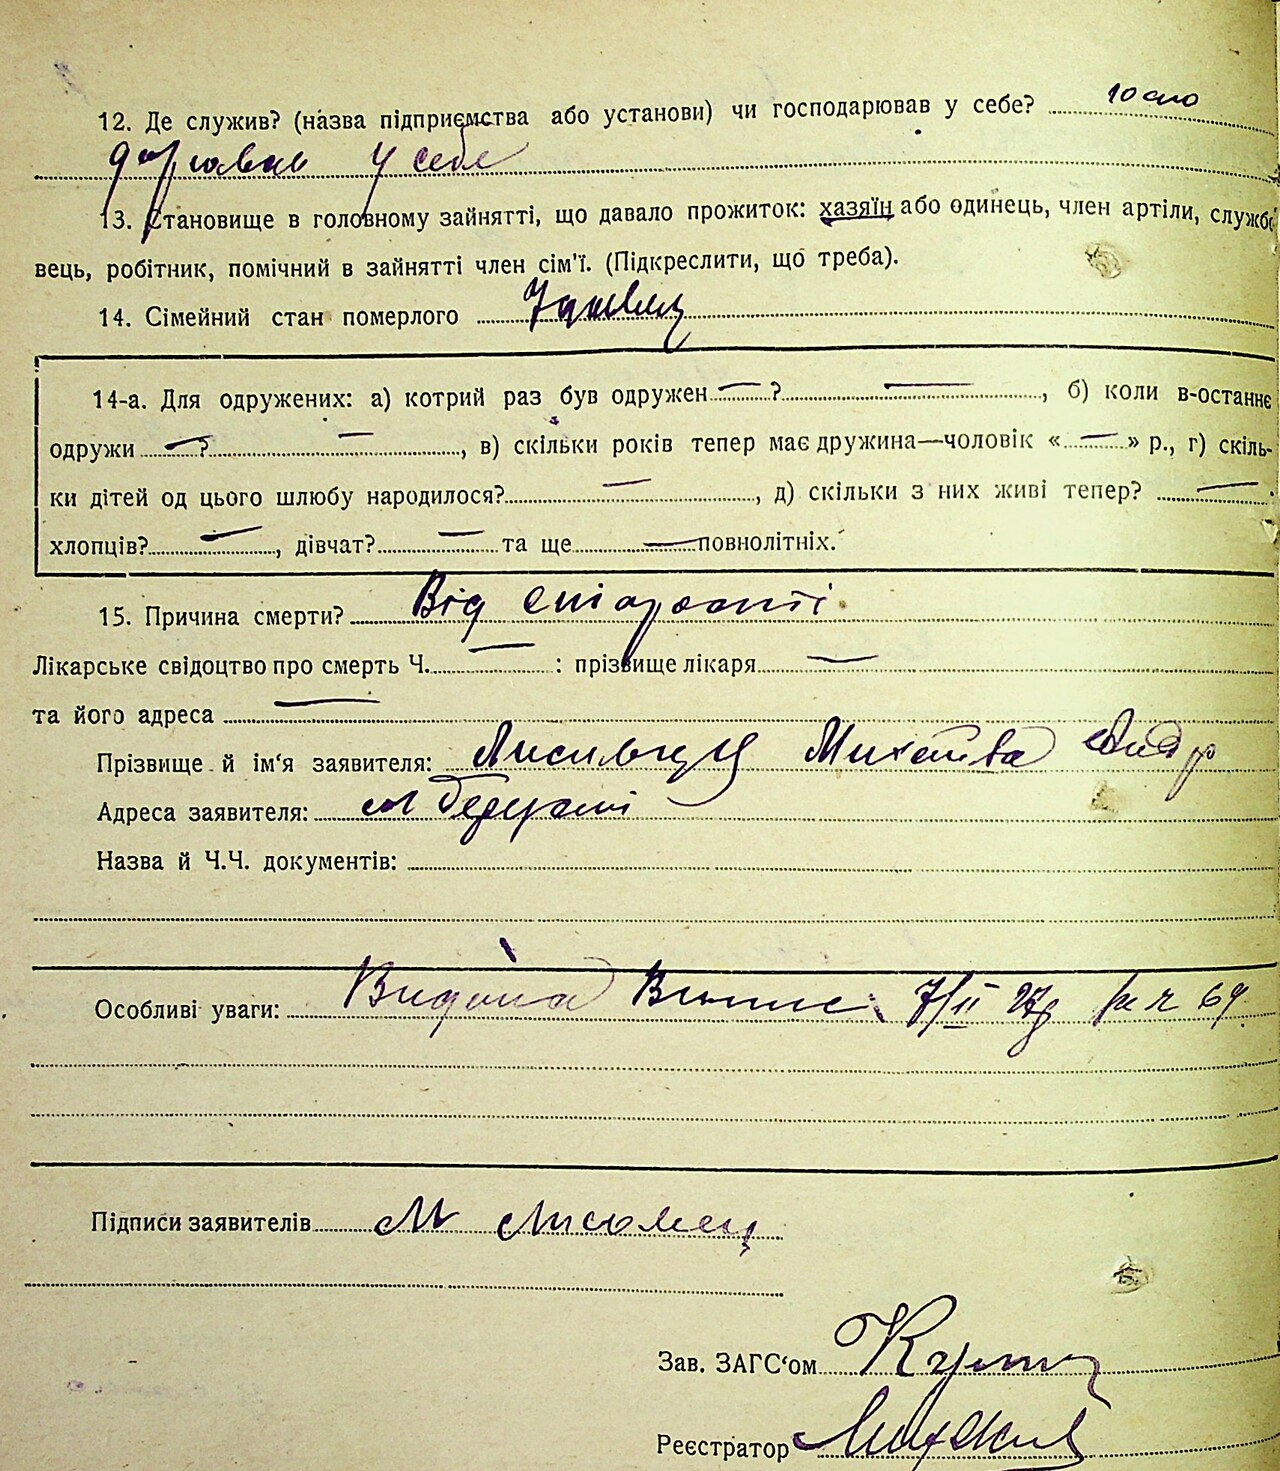 12. Де служив? (назва підприємства або установи) чи господарював у себе?
у себе
13. Становище в головному зайнятті, що давало прожиток: хазяїн або одинець, член артіли, службо-
вець, робітник, помічний в зайнятті член сім'ї. (Підкреслити, що треба).
14. Сімейний стан померлого
14-а. Для одружених: а) котрий раз був одружен — ? —, б) коли в-останнє
одружи — ? —, в) скільки років тепер має дружина—чоловік « — » р., г) скіль-
ки дітей од цього шлюбу народилося? —, д) скільки з них живі тепер? —
хлопців? —, дівчат? — та ще — повнолітніх.
15. Причина смерти? Від старости
Лікарське свідоцтво про смерть Ч. — : прізвище лікаря —
та його адреса —
Прізвище й ім'я заявителя:
Адреса заявителя:
Назва й Ч.Ч. документів:
Особливі уваги: Видана 7/II 27
Підписи заявителів М Лисовец
Зав. ЗАГС'ом
Реєстратор